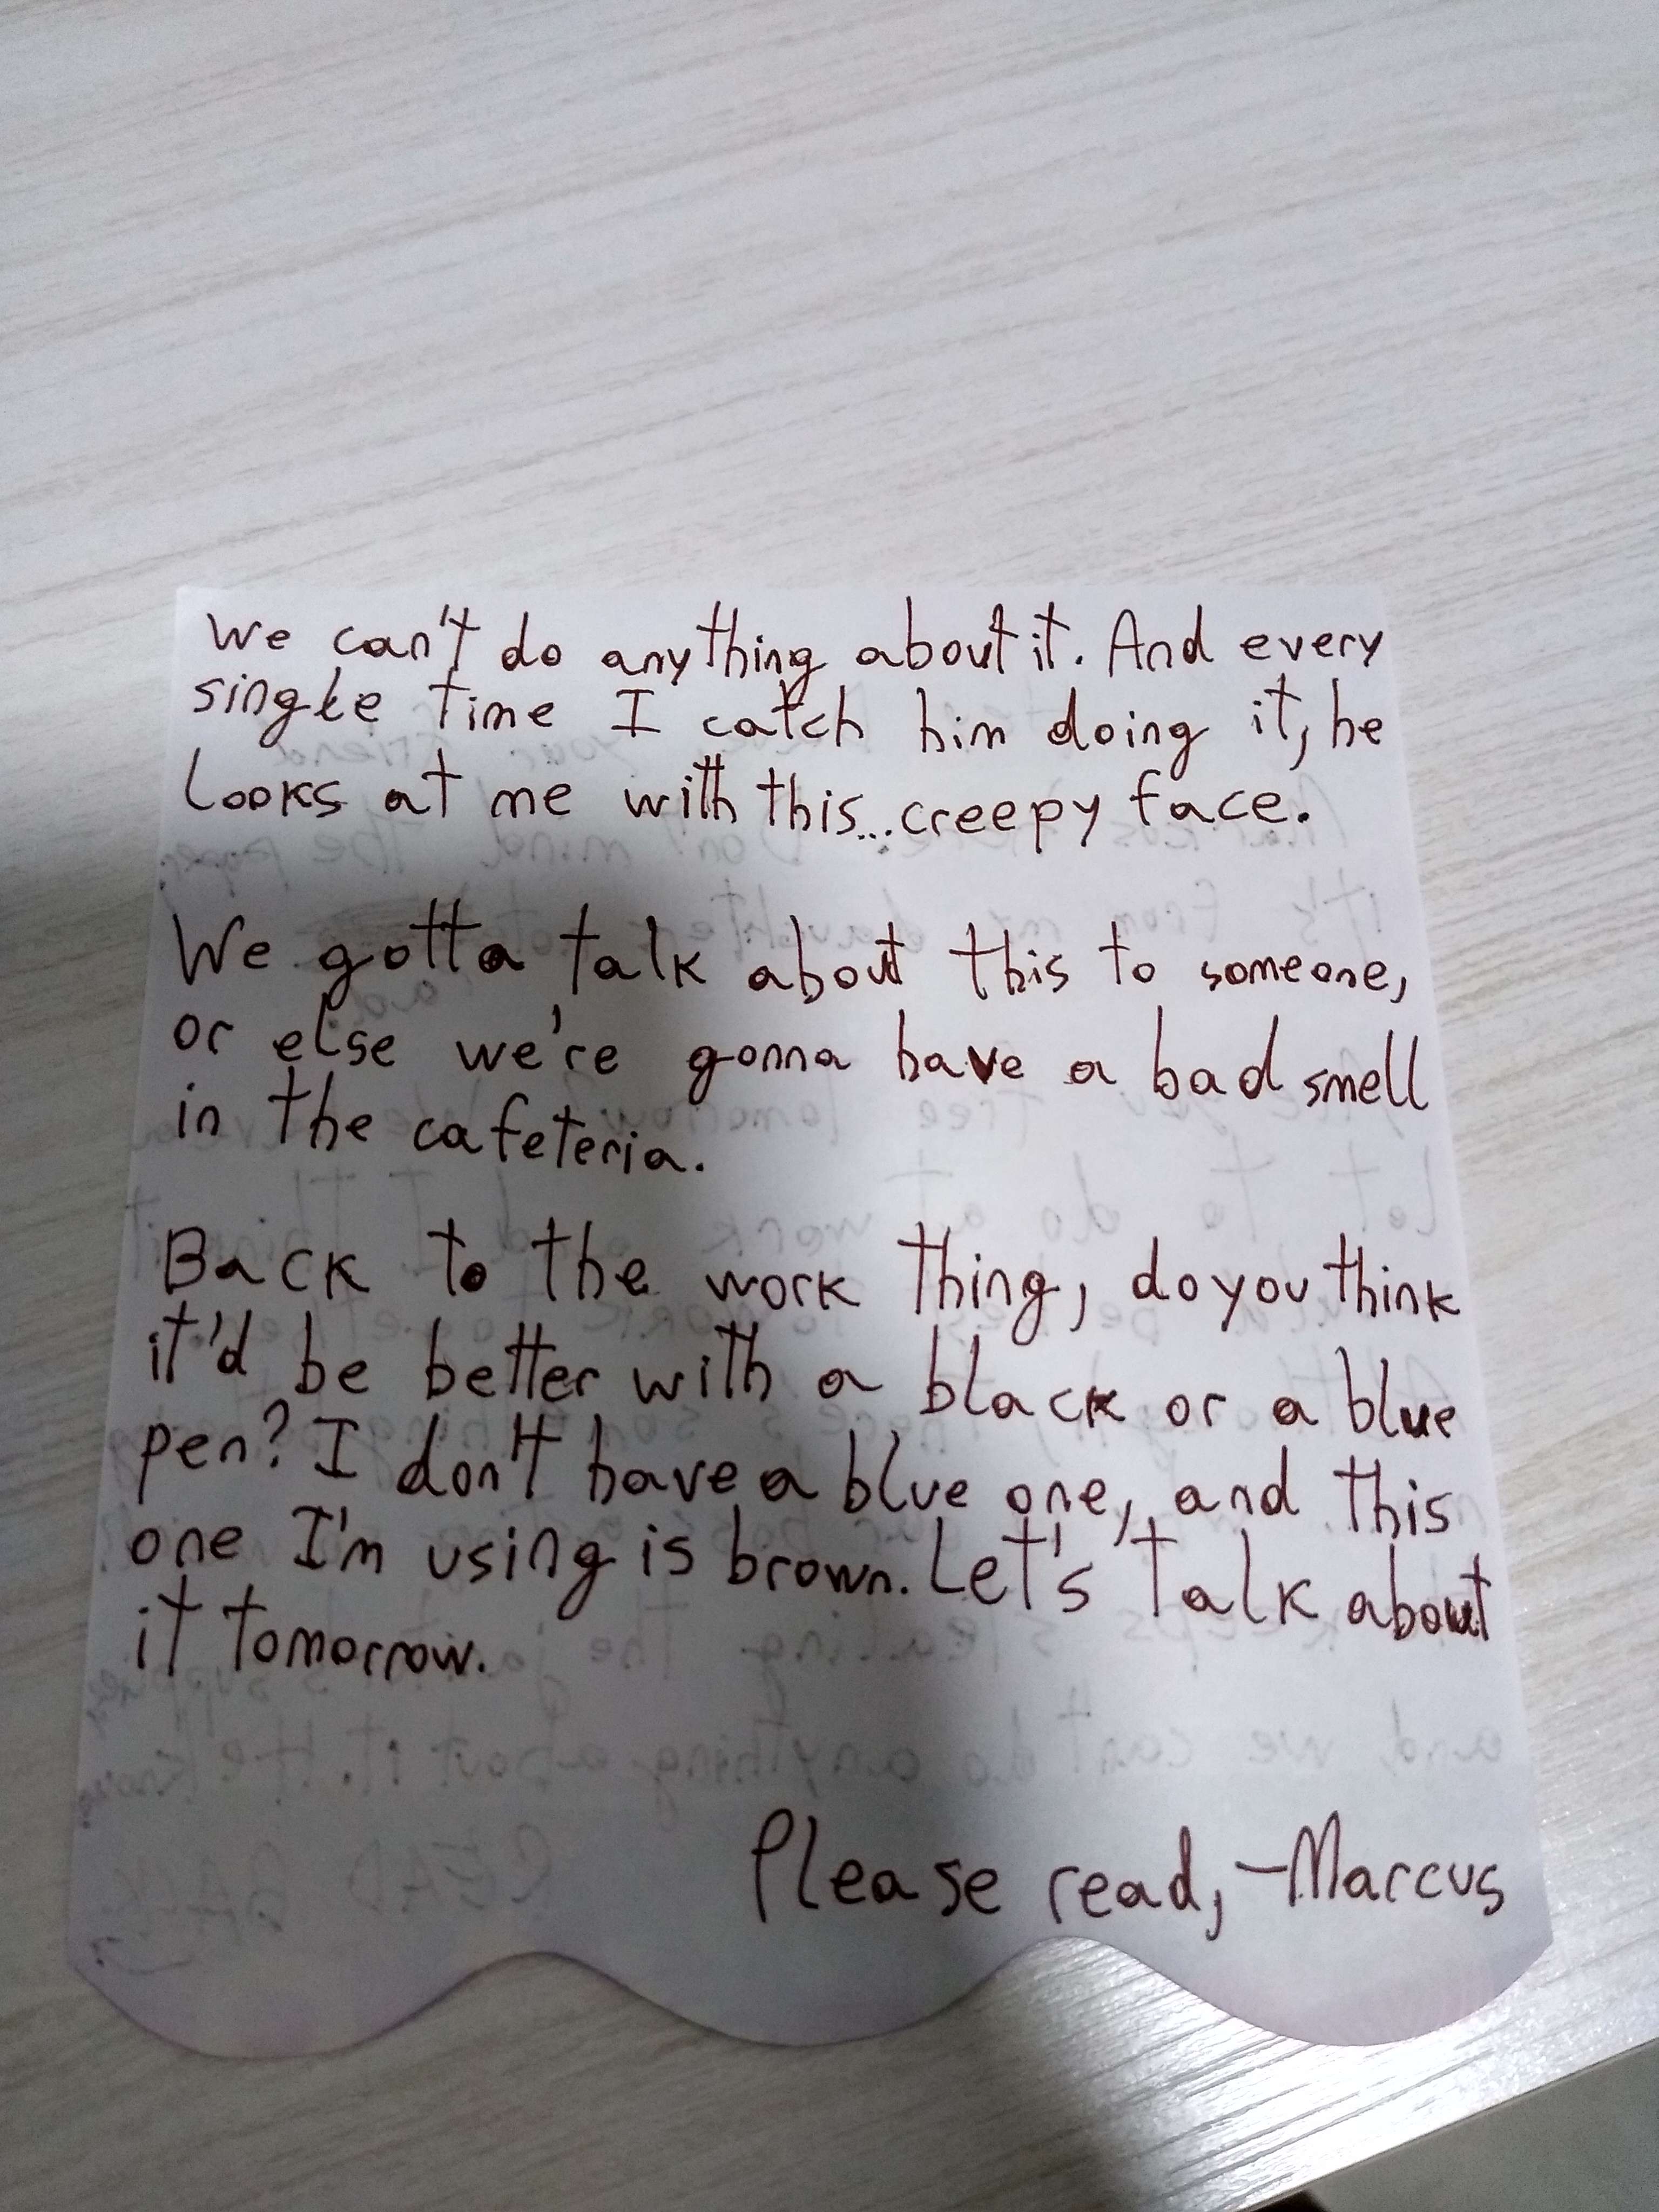 We can't do anything about it. And every
single time I catch him doing it, he
looks at me with this...creepy face.
We gotta talk about this to someone,
or else we're gonna have a bad smell
in the cafeteria.
Back to the work thing, do you think
it'd be better with a black or a blue
pen? I don't have a blue one, and this
one I'm using is brown. Let's talk about
it tomorrow.
Please read, -Marcus